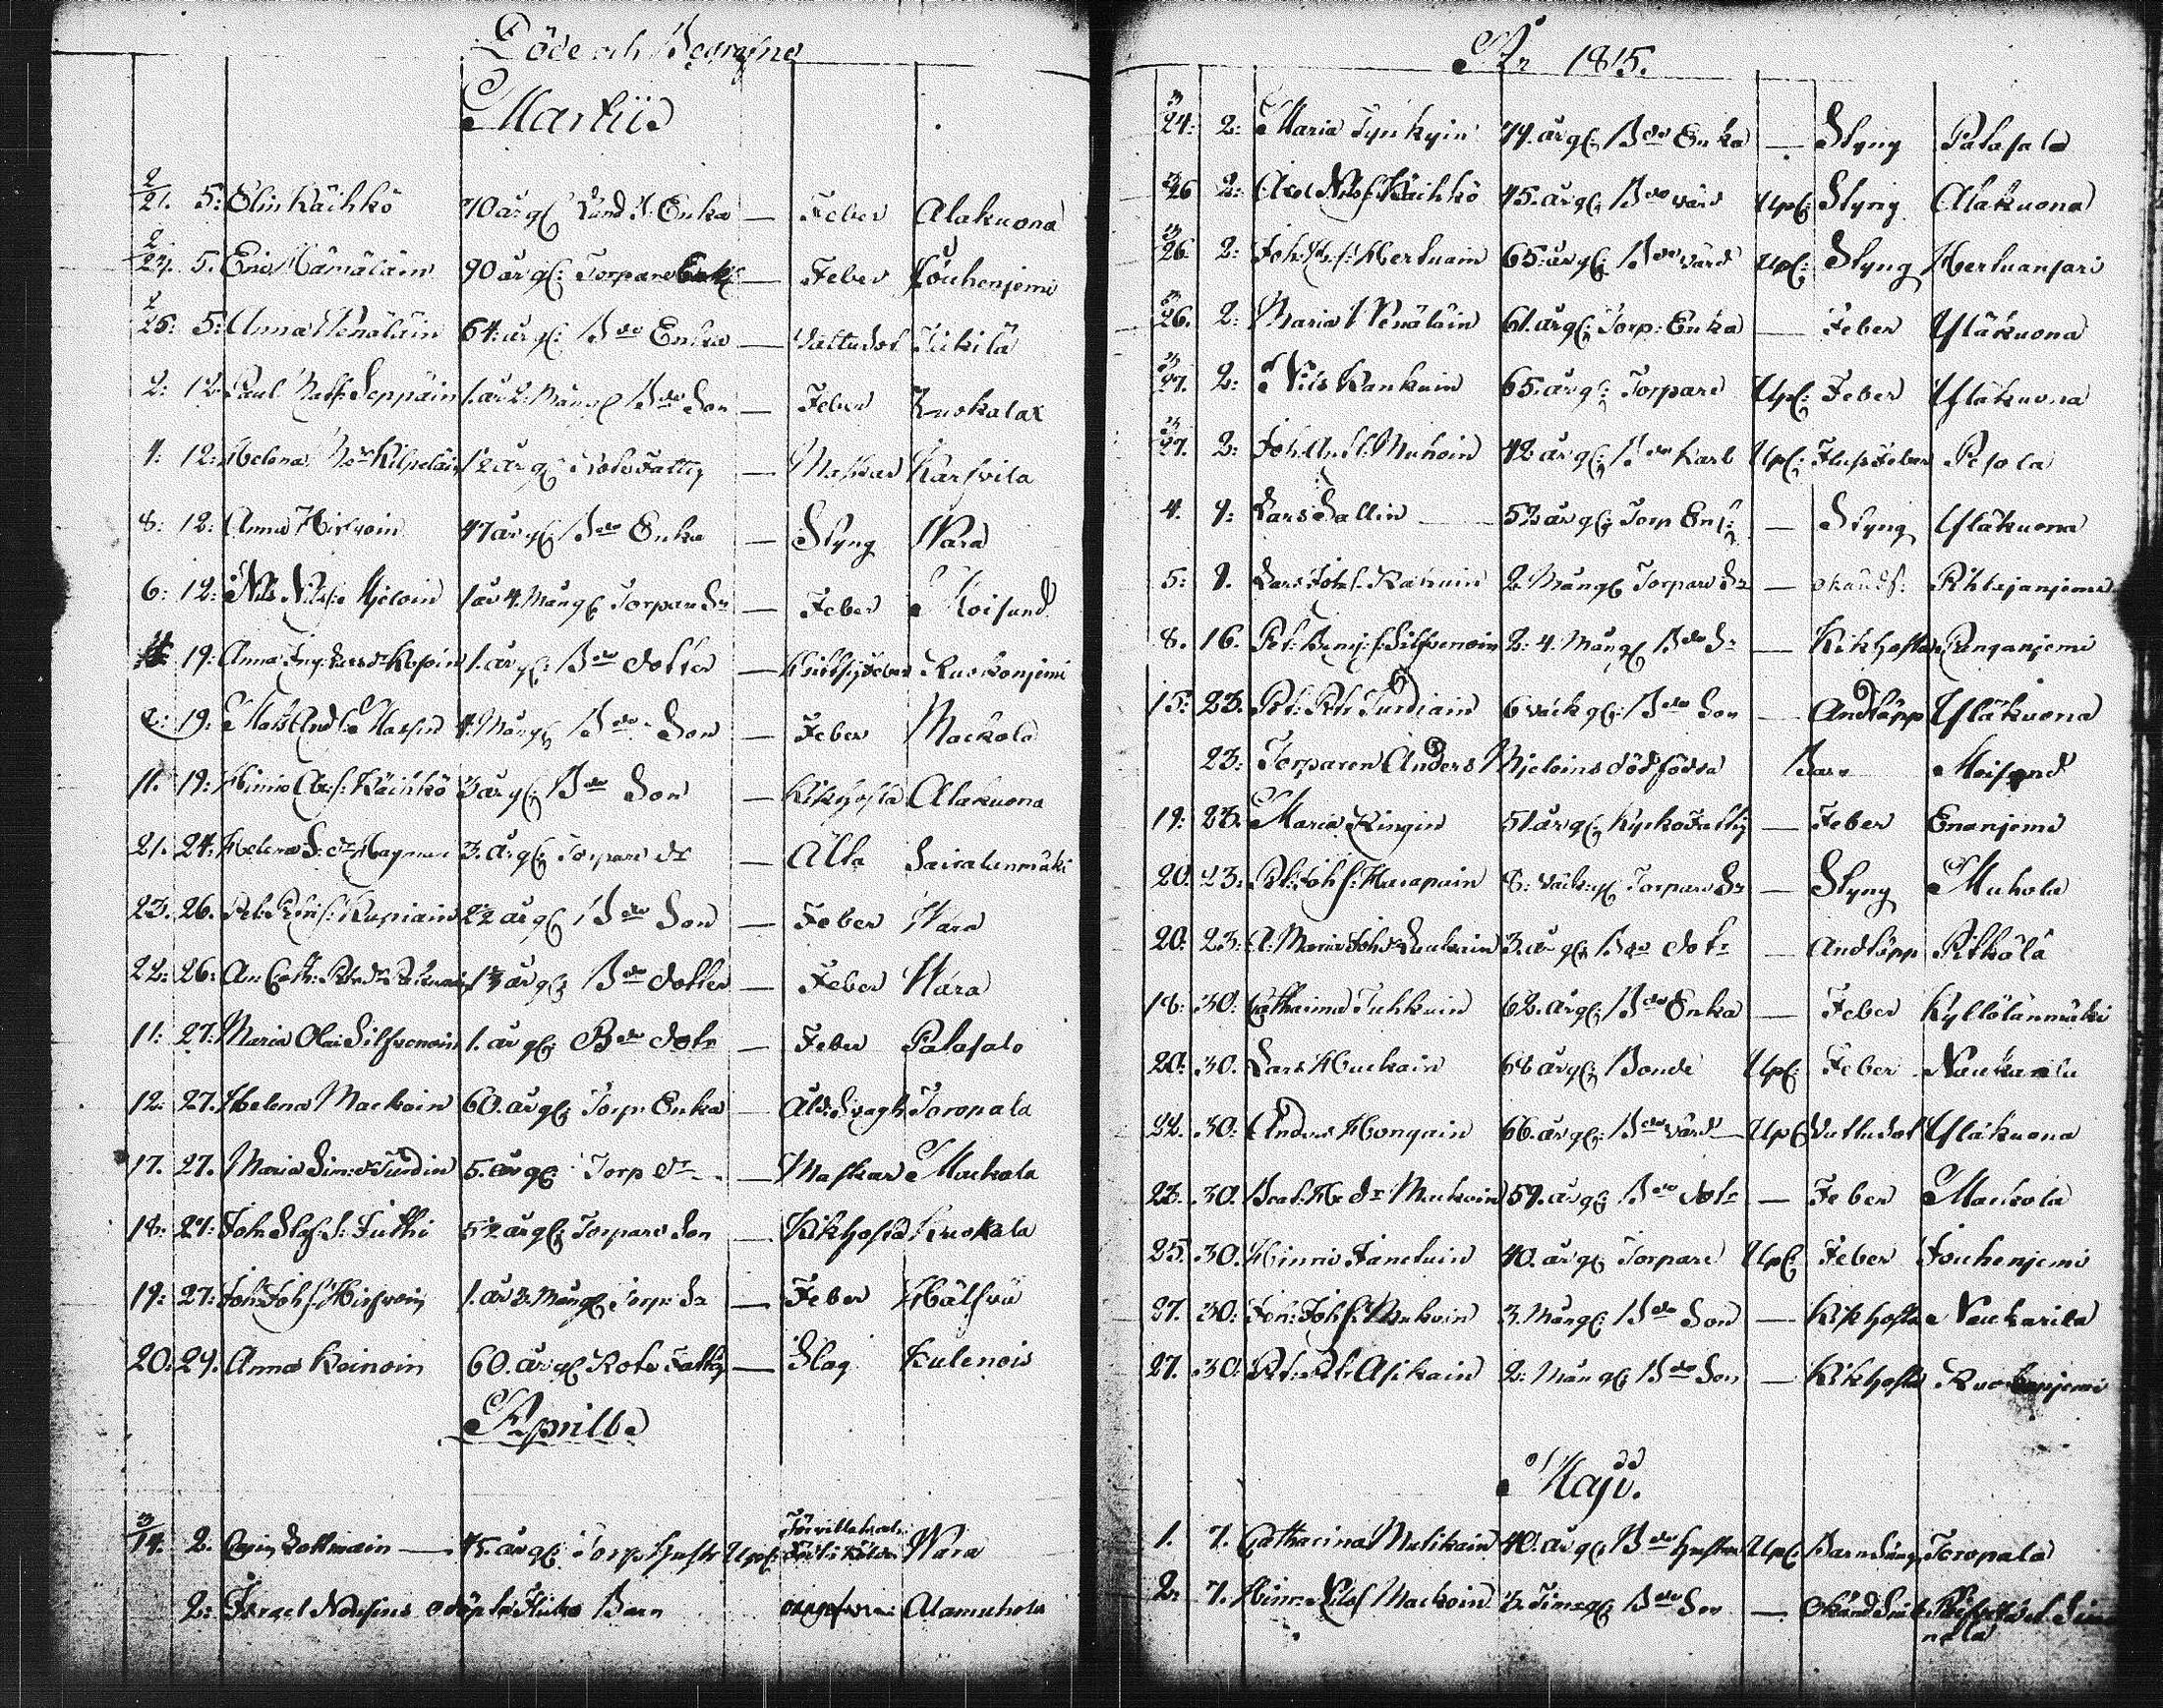 Döde och Begrafne
Martii
2/21. 5: Elin Käihkö 70 år gl: Enka — Feber Alakuona
2/24. 5. Eric Hämäläin 90 år gl: Torpare Enkl: — Feber Jouhenjemi
2/25: 5: Anna Venäläin 64: år gl: Bde Enka — Vattusot
2: 12: Paul Matts: Seppäin 1. år 2. Mån gl Bde Son — Feber Kuokalax
4: 12: Helena Kilpeläin 12 år gl Rote Fattig — Maskar Karsvila
8: 12: Anna Hirvoin 47 år gl: Bde Enka — Styng Wara
6: 12: Nils Nilss: Mjeloin 1 år 4. Mån gl Torpare Sn — Feber Moisund
19: Anna 1. år gl: Bde dotter — Ruokonjemi
2: 19: Mats And: 4. Mån gl Bde Son — Feber Mackola
11. 19: Hinric Ab: s: Käihkö 3 år gl: Bde Son — Kikhosta Alakuona
21. 24: Helena S: dr Hagman 3. år gl Torpare dr — Alta Sairalanmäki
23. 26. Pet: 2½ år gl Bde Son — Feber Wara
22: 26: An: Cath: 1½ år gl: Bde dotter — Feber Wara
11: 27: Maria Olai Silfvenoin 1. år gl: Bde dotr — Feber Patasalo
12: 27. Helena Mackoin 60. år gl: Torp: Enka — Åld: Svagh: Toropala
17. 27. Maria Sim: dr Turdin 5. år gl: Torp dr — Maskar Mackola
18: 27: Joh: Jutti 5½ år gl: Torpare Son — Kikhosta Kuokala
19: 27: Joh: Joh s: Hirfvoin 1. år 3. Mån gl Torp: Sn — Feber Hälfvä
20: 27. Anna Keinoin 60. år gl Rote Fattig — Slag Kulenois
Aprill
3/14. 2. 45. år gl: Torp: hustr Upl: Wara
2: Israel odöpte Flicke Barn Alamuhola
År 1815.
3/24: 2: Maria Tynkyin 74. år gl: Bde Enka — Styng Patasalo
3/26 2: Axel Nils s: Käihkö 45. år gl: Bde värd Upl: Styng Alakuona
3/26. 2: Joh: Hertuain 65: år gl: Bde värd Upl: Styng Hertuansari
3/26. 2: Maria Venäläin 61. år gl: Torp: Enka — Feber Yläkuona
3/27. 2: Nils Kankuin 65. år gl: Torpare Upl: Feber Yläkuona
3/27. 2: Joh: And: s: Muhoin 42 år gl: Bde Karl Upl: Fluss Feber Pesola
4. 9: Lars Sallin — 52 år gl: Torp Enkl: — Styng Yläkuona
5: 9. Lars Joh s: Kakuin 2. Mån gl: Torpare Sn — okändt: Pihlajanjemi
8. 16. Pet: Benj: s: Silfvenoin 2: 4. Mån gl: Bde Sn — Kikhosta Ranganjemi
15: 23. Pet: Petr: Turdiain 6 väck gl: Bde Son — Andtäpp Yläkuona
23: Torparen Anders Mjeloins dödfödda Barn Moisund
19: 23. Maria Ringin 51. år gl: Kyrko Fattig — Feber Enanjemi
20. 23: Pet: Joh s: Harapain 8. väck: gl Torpare Sn — Styng Muhola
20. 23: A: Maria Joh dr Laukain 3. år gl: Bde dotr — Andtäpp Pitkälä
18: 30: Catharina Tuhkuin 62. år gl: Bde Enka — Feber Kyllölänmäki
20: 30. Lars Huckain 68 år gl: Bonde Upl: Feber Naukarila
22. 30: Anders Hongain 66. år gl: Bde värd — Upl: Vattusot Yläkuona
23. 30. Beat: dr Muckoin 59. år gl: Bde dotr — Feber Mackola
25. 30. Hinric Janetuin 40. år gl: Torpare Upl: Feber Jouhenjemi
27. 30: Joh: Joh s: Muhoin 3. Mån gl: Bde Son — Kikhosta Naukarila
27. 30: Pet: Petr: Asikain 2: Mån gl: Bde Son — Kikhosta
Maji.
1. 7. Catharina Mulikain 40. år gl: Bde hustru Upl: Barnsäng Toropala
2. 7. Hinric Nils s: Mackoin 3. Tim: gl: Bde Son — Okänd